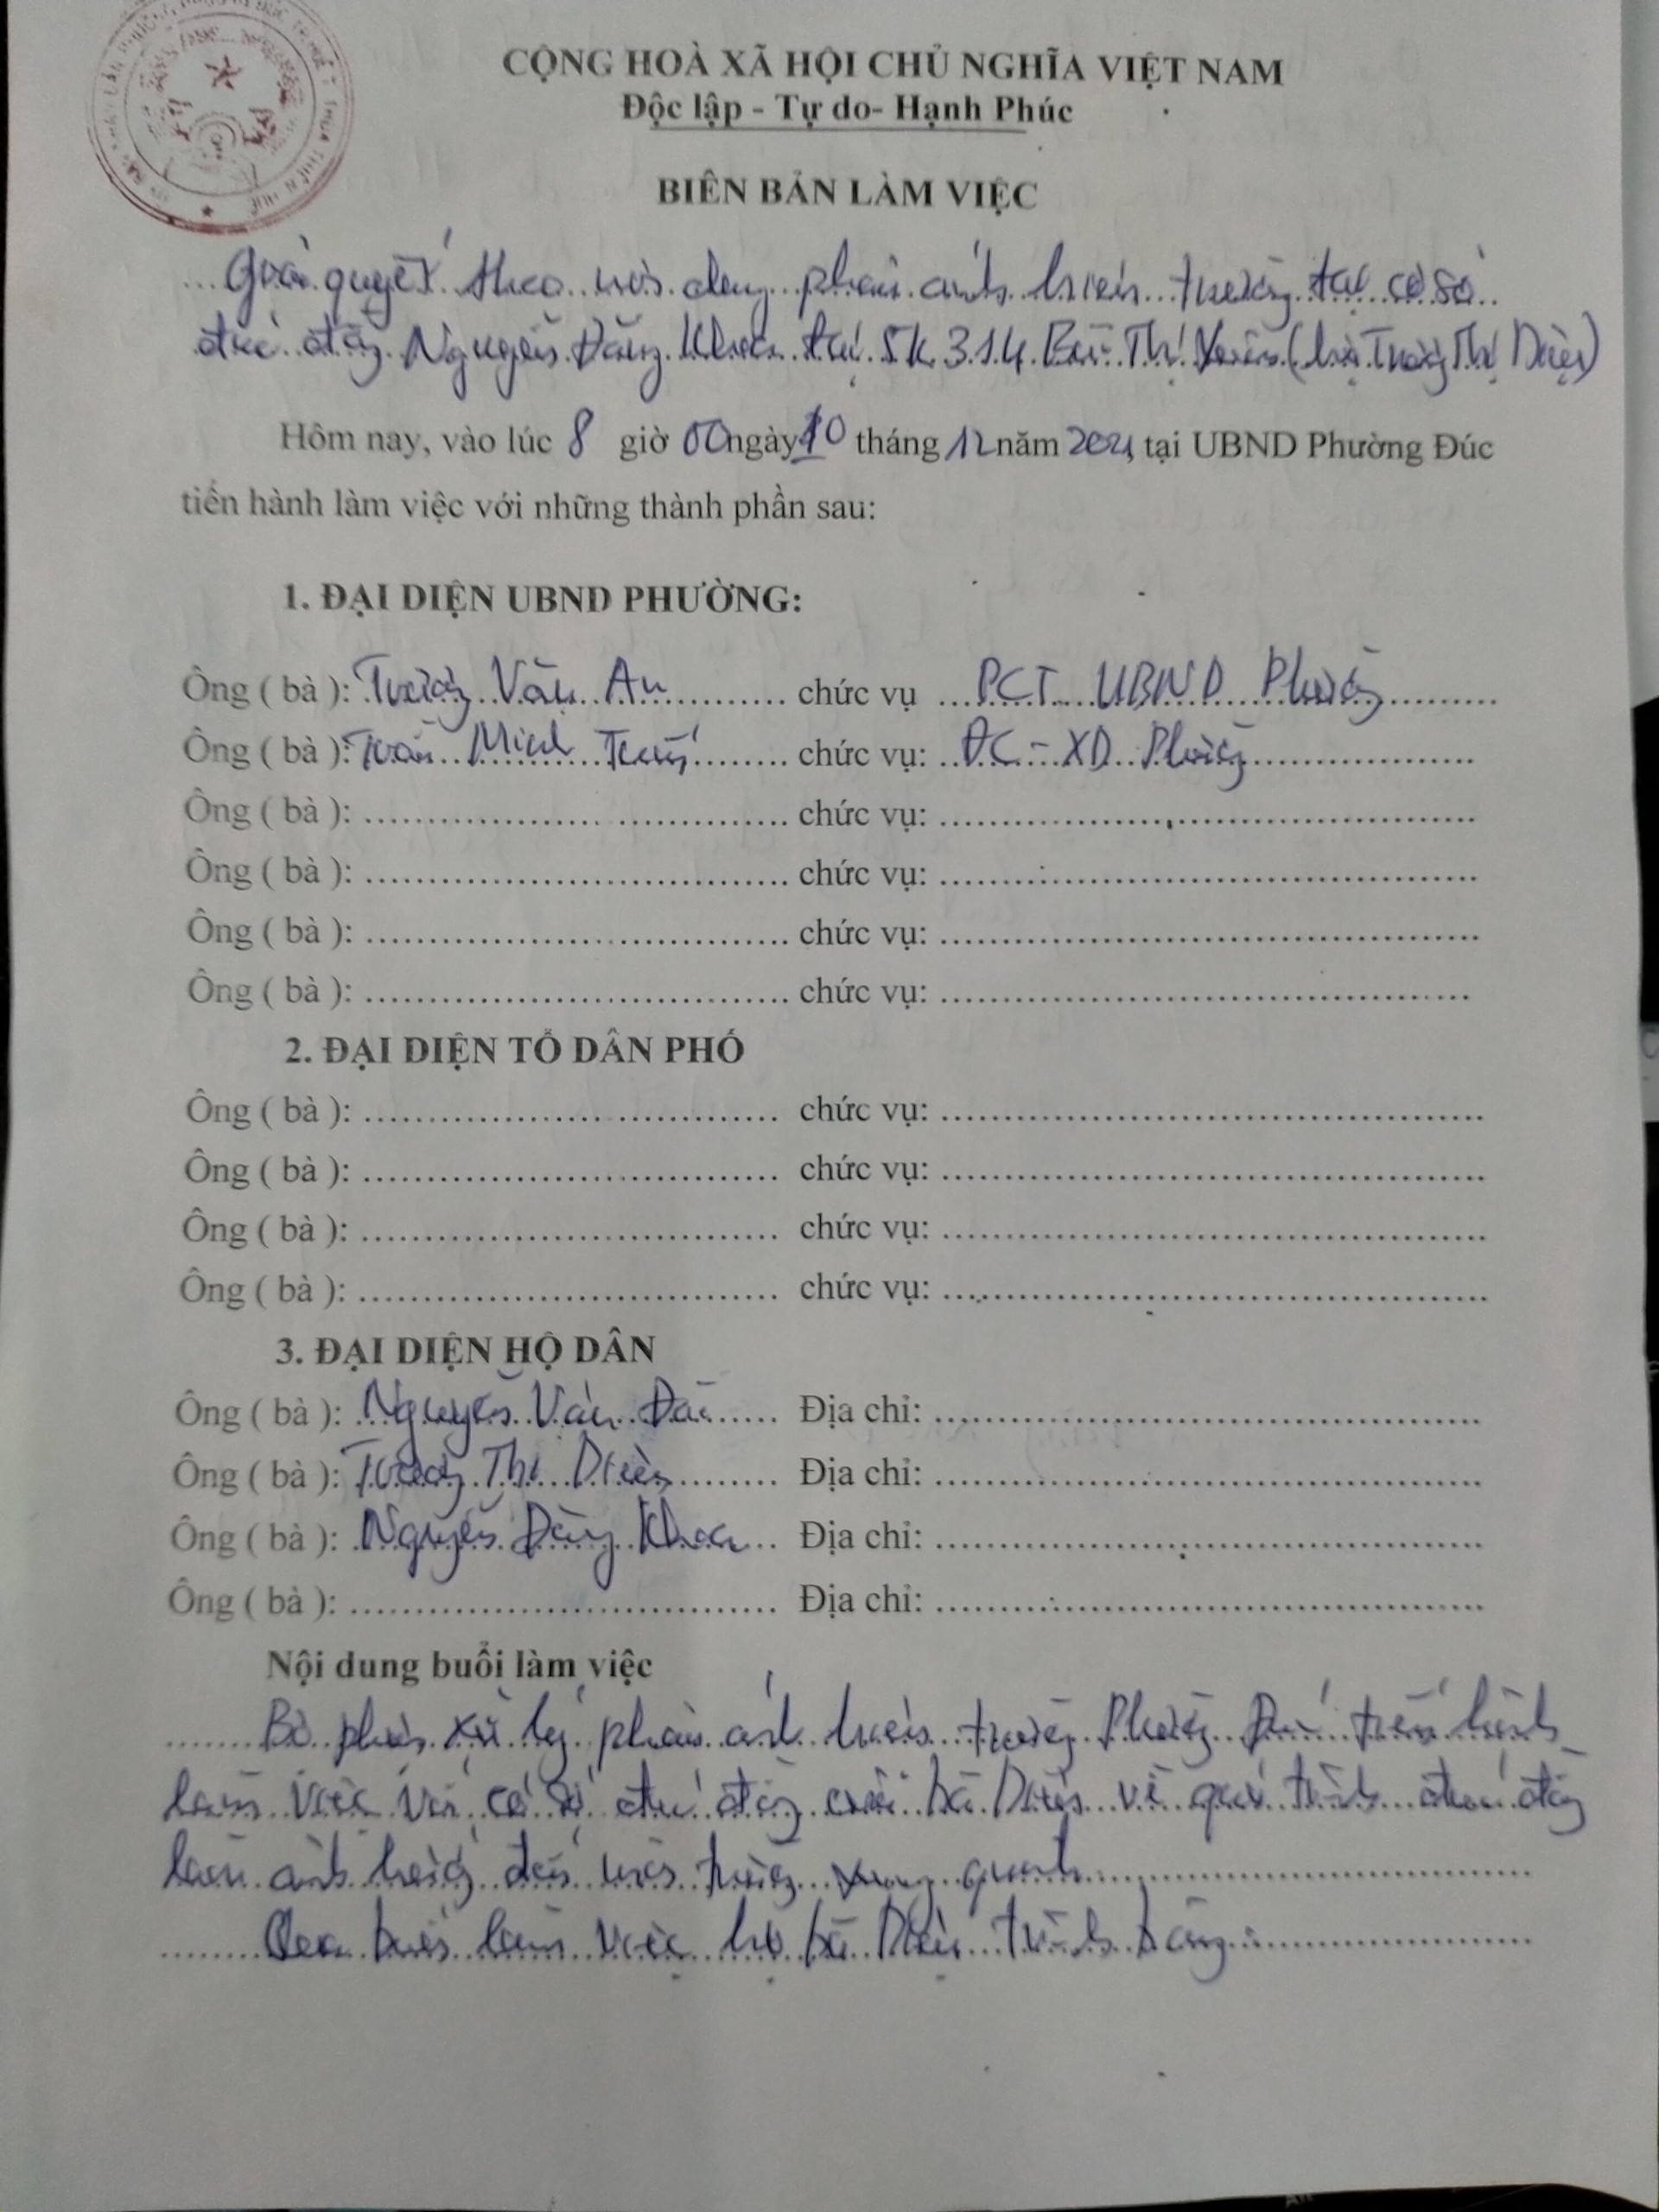 CỘNG HOÀ XÃ HỘI CHỦ NGHĨA VIỆT NAM
Độc lập - Tự do- Hạnh Phúc
BIÊN BẢN LÀM VIỆC
Giải quyết theo nội dung phản ánh hiện trường tại cơ sở
đúc đồng Nguyễn Đăng Khoa tại 5K 314 Bùi Thị Xuân (bà Trương Thị Diệu)
Hôm nay, vào lúc 8 giờ 00 ngày 10 tháng 12 năm tại UBND Phường Đúc
tiến hành làm việc với những thành phần sau:
1. ĐẠI DIỆN UBND PHƯỜNG:
Ông ( bà ): Trương Văn An chức vụ PCT UBND Phường
Ông ( bà ): Trần Minh chức vụ: ĐC - XD Phường
Ông ( bà ): chức vụ:
Ông ( bà ): chức vụ:
Ông ( bà ): chức vụ:
Ông ( bà ): chức vụ:
2. ĐẠI DIỆN TỔ DÂN PHỐ
Ông ( bà ): chức vụ:
Ông ( bà ): chức vụ:
Ông ( bà ): chức vụ:
Ông ( bà ): chức vụ:
3. ĐẠI DIỆN HỘ DÂN
Ông ( bà ): Nguyễn Văn Địa chỉ:
Ông ( bà ): Trương Thị Diệu Địa chỉ:
Ông ( bà ): Nguyễn Đăng Khoa Địa chỉ:
Ông ( bà ): Địa chỉ:
Nội dung buổi làm việc
Bộ phận xử lý phản ánh hiện trường Phường Đúc tiến hành
làm việc với cơ sở đúc đồng của bà Diệu về quá trình đúc đồng
làm ảnh hưởng đến môi trường xung quanh
Qua buổi làm việc hộ bà Diệu trình bày: